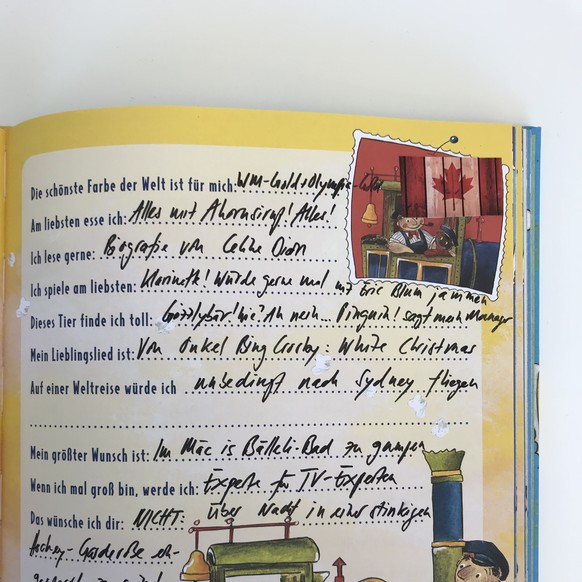 Die schönste Farbe der Welt ist für mich: WM-Gold + Olympia-Gold
Am liebsten esse ich: Alles mit Ahornsirup! Alles!
Ich lese gerne: Biografie von Celine Dion
Ich spiele am liebsten: Klarinette! Würde gerne mal mit Eric Blum jammen
Dieses Tier finde ich toll: Grizzlybär! nie? Ah nein... Pinguin! sagt mein Manager
Mein Lieblingslied ist: Von Onkel Bing Crosby: White Christmas
Auf einer Weltreise würde ich unbedingt nach Sydney fliegen
Mein größter Wunsch ist: Im Mäc is Bälleli-Bad zu gumpen
Wenn ich mal groß bin, werde ich: Experte für TV-Experten
Das wünsche ich dir: NICHT: über Nacht in einer stinkigen
Hockey-Garderobe ein-